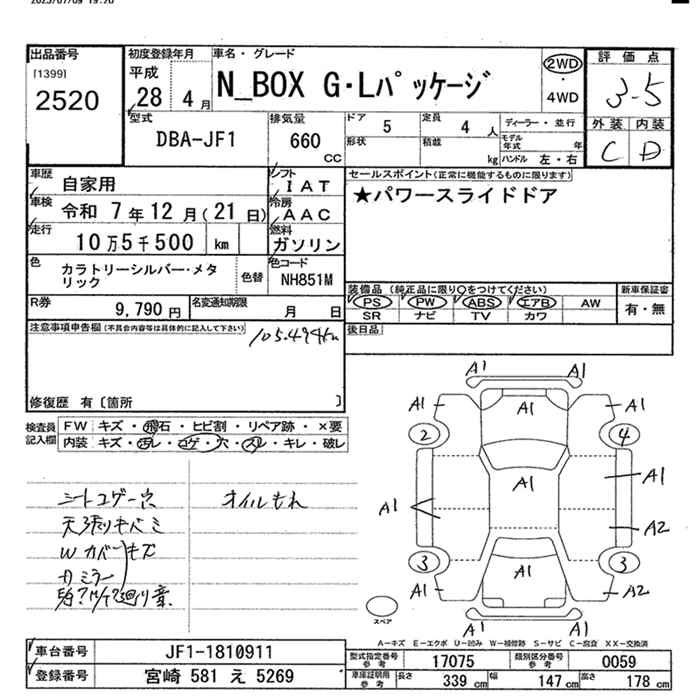 2023/07/09 19:20
出品番号
[1399]
2520
初度登録年月
平成
28 4月
車名・グレード
N_BOX G・Lパッケージ
2WD
・
4WD
評価点
3.5
外装 内装
C D
型式
DBA-JF1
排気量
660
CC
ドア
5
定員
4 人
形状
積載
kg
ディーラー・並行
モデル年式 年
ハンドル 左・右
車歴
自家用
車検
令和 7年 12月(21日)
走行
10万5千500 km
シフト
IAT
冷房
AAC
燃料
ガソリン
色
カラトリーシルバー・メタリック
色替
色コード
NH851M
R券
9,790 円
名変通知期限
月 日
セールスポイント(正常に機能するものに限ります)
★パワースライドドア
装備品 (純正品に限り○をつけてください)
PS PW ABS エアB AW
SR ナビ TV カワ
新車保証書
有・無
後日品
注意事項申告欄(不具合内容等は具体的に記入して下さい)
105.494km
修復歴 有〔箇所 〕
検査員記入欄
FW キズ・飛石・ヒビ割・リペア跡・×要
内装 キズ・汚レ・コゲ・穴・スレ・キレ・破レ
シートコゲ穴
天張りキバミ
Wカバーキズ
オイルもれ
A1 A1
A1 A1 A1
2 4
A1 A1 A1
A2
3 3
A1 A1 A2
A1 A1
スペア
A-キズ E-エクボ U-凹み W-補修跡 S-サビ C-腐食 XX-交換済
車台番号
JF1-1810911
登録番号
宮崎 581 え 5269
型式指定番号 参考
17075
類別区分番号 参考
0059
車庫証明用 参考
長さ 339 cm 幅 147 cm 高さ 178 cm